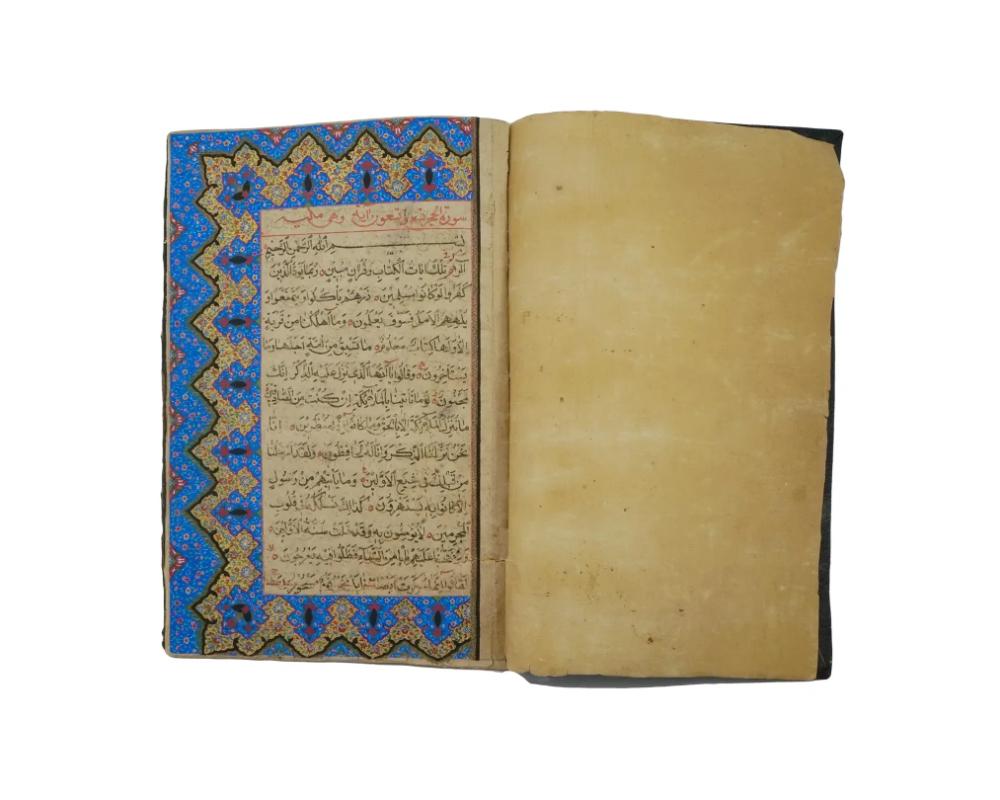 سورة الحجر تسع و تسعون اية وهي مكية
بسم الله الرحمن الرحيم
الر تلك ايات الكتاب وقران مبين ربما يود الذين
كفروا لو كانوا مسلمين ذرهم ياكلوا ويتمتعوا و
يلههم الامل فسوف يعلمون وما اهلكنا من قرية
الا ولها كتاب معلوم ما تسبق من امة اجلها وما
يستاخرون وقالوا يا ايها الذي نزل عليه الذكر انك
لمجنون لو ما تاتينا بالملائكة ان كنت من الصادقين
ما ننزل الملائكة الا بالحق وما كانوا اذا منظرين انا
نحن نزلنا الذكر وانا له لحافظون ولقد ارسلنا
من قبلك في شيع الاولين وما ياتيهم من رسول
الا كانوا به يستهزؤن كذلك نسلكه في قلوب
المجرمين لا يؤمنون به وقد خلت سنة الاولين
ولو فتحنا عليهم بابا من السماء فظلوا فيه يعرجون
لقالوا انما سكرت ابصارنا بل نحن قوم مسحورون